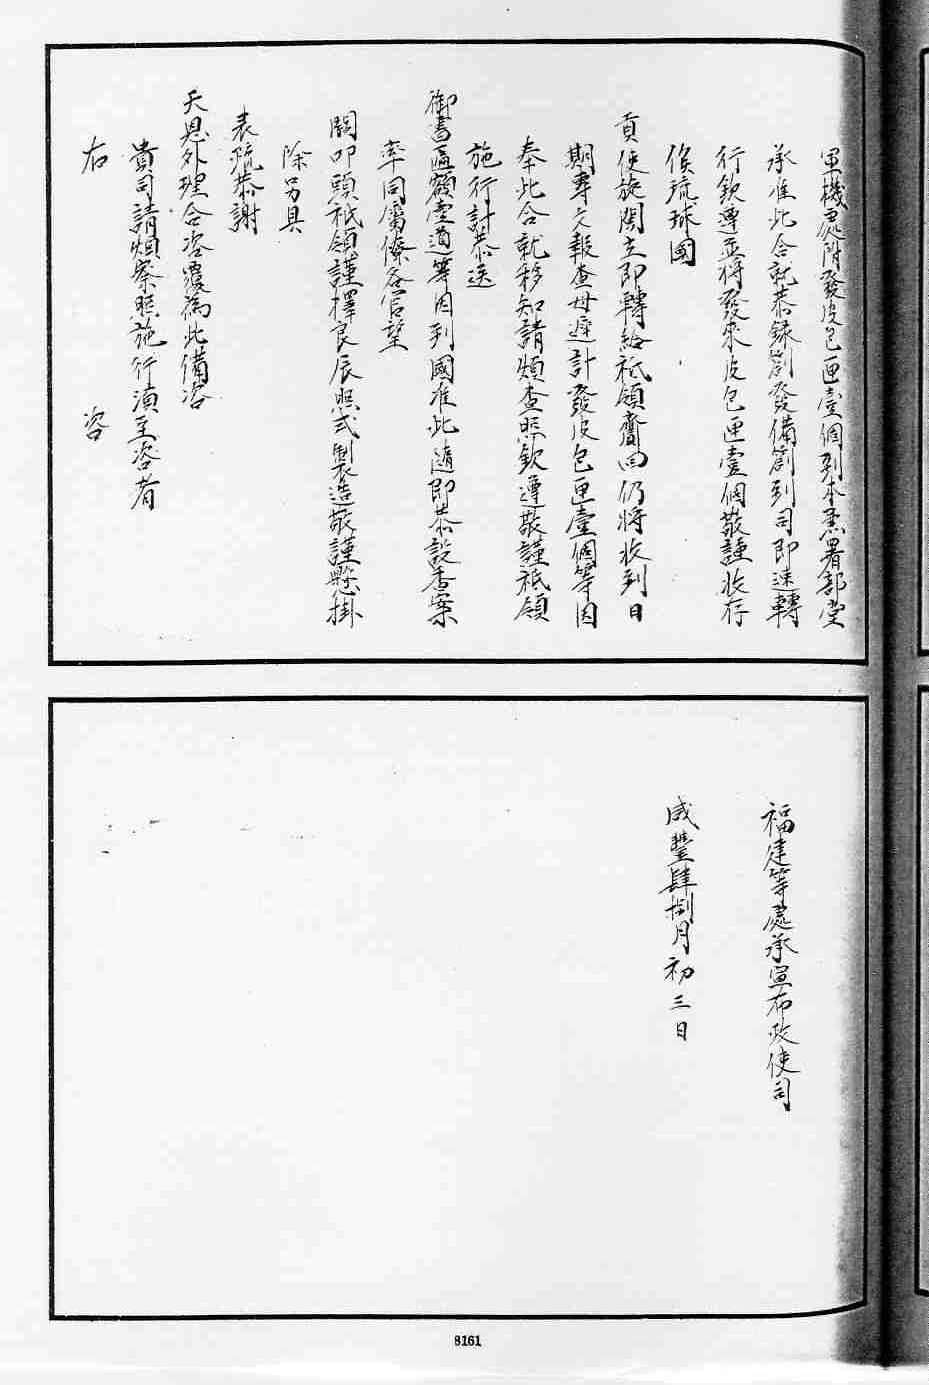 軍機處附發皮包匣壹個到本兼署部堂
承准此合就恭錄劄發備劄到司即速轉
行欽遵並將發來皮包匣壹個敬謹收存
俟琉球國
貢使旋閩立即轉給祗領齎回仍將收到日
期專文報查毋遲計發皮包匣壹個等因
奉此合就移知請煩查照欽遵敬謹祗領
施行計恭送
御書匾額壹道等因到國准此隨即恭設香案
率同屬僚各官望
闕叩頭祗領謹擇良辰照式製造敬謹懸掛
除另具
表疏恭謝
天恩外理合咨覆為此備咨
貴司請煩察照施行須至咨者
右　咨
福建等處承宣布政使司
咸豐肆捌月初三日
8161